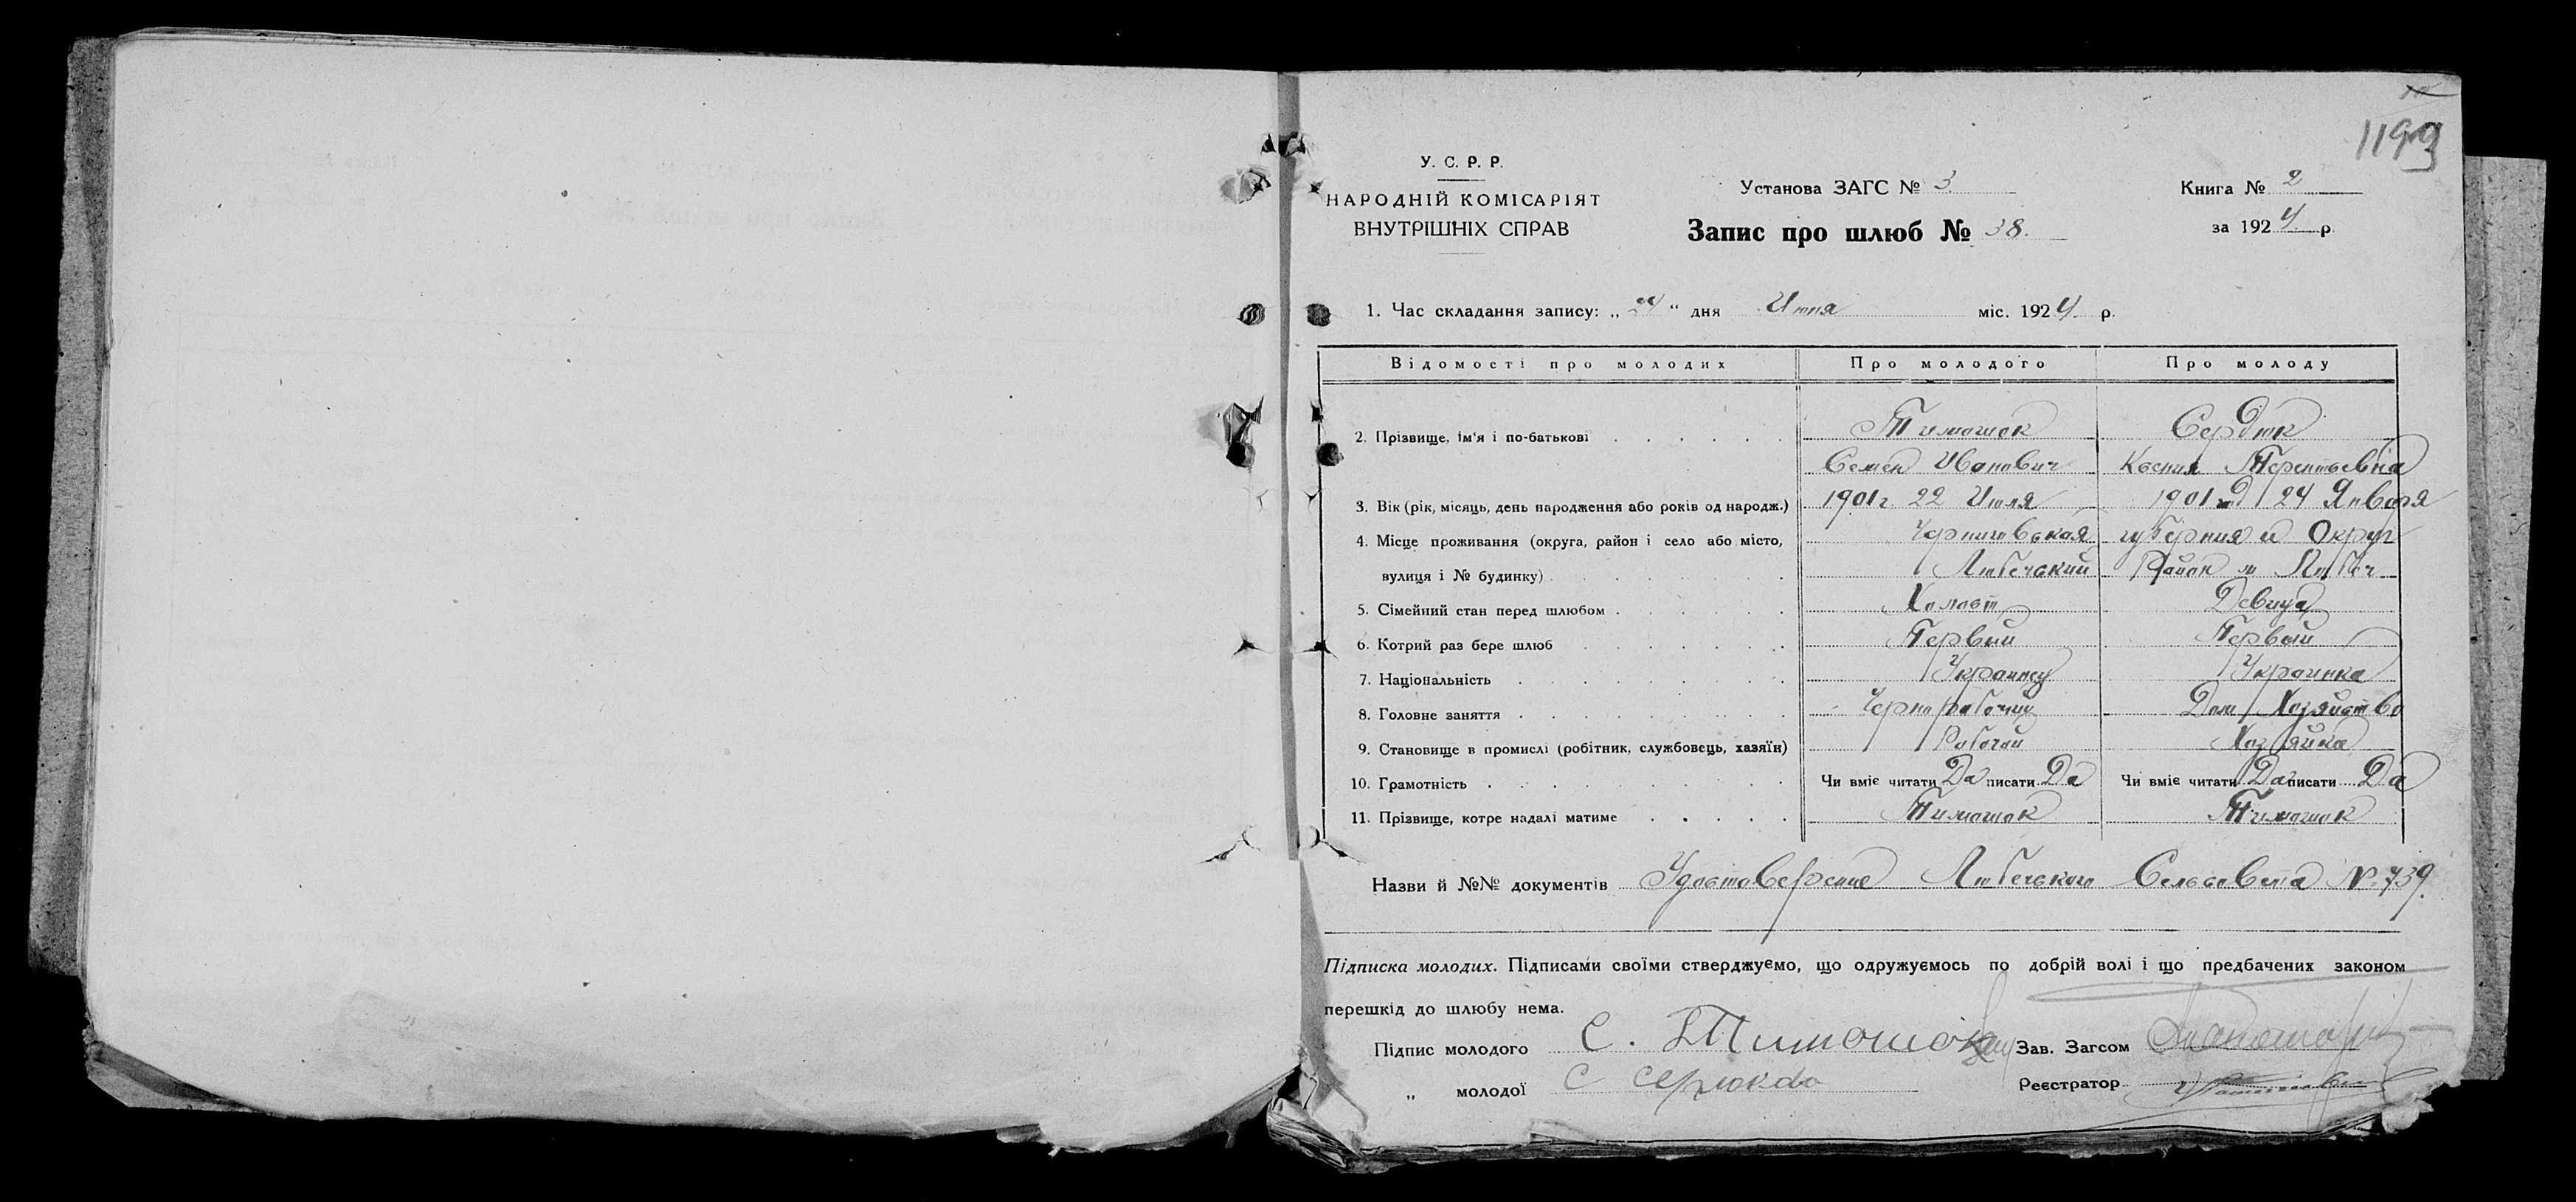 1193
У. С. Р. Р.
НАРОДНІЙ КОМІСАРІЯТ
ВНУТРІШНІХ СПРАВ
Установа ЗАГС № 3
Запис про шлюб № 38.
Книга № 2
за 1924 р.
1. Час складання запису: „24“ дня Июня міс. 1924. р.
Відомості про молодих Про молодого Про молоду
2. Прізвище, ім'я і по-батькові Тимошок Сердюк
Семен Иванович Ксения Терентьевна
3. Вік (рік, місяць, день народження або років од народж.) 1901 г. 22 Июля 1901 год 24 Января
4. Місце проживання (округа, район і село або місто, Черниговская губерния и Округ
вулиця і № будинку) Любечский Район м Любеч
5. Сімейний стан перед шлюбом Холост Девица
6. Котрий раз бере шлюб Первый Первый
7. Національність Украинец Украинка
8. Головне заняття Чернорабочий Дом Хозяйство
9. Становище в промислі (робітник, службовець, хазяїн) Рабочий Хозяйка
10. Грамотність Чи вміє читати Да писати Да Чи вміє читати Да писати Да
11. Прізвище, котре надалі матиме Тимошок Тимошок
Назви й №№ документів Удостоверение Любечского Сельсовета №739.
Підписка молодих. Підписами своїми стверджуємо, що одружуємось по добрій волі і що предбачених законом
перешкід до шлюбу нема.
Підпис молодого С. Тимошок Зав. Загсом
„ молодої С Сердюкова Реєстратор